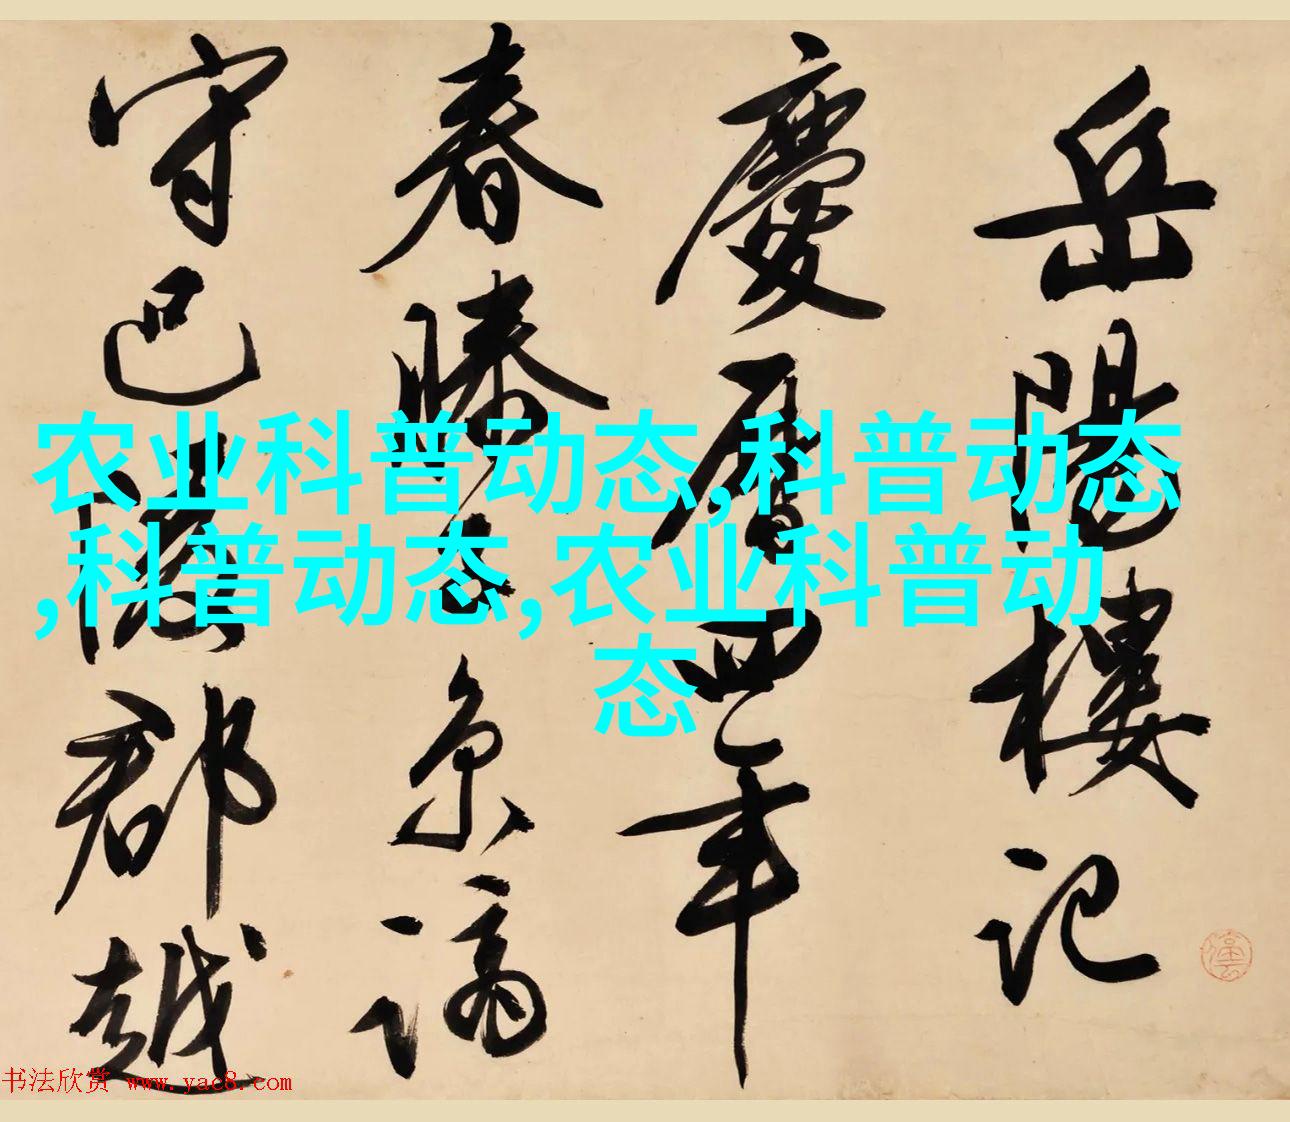 岳陽樓記
慶曆四年
春滕子京謫
守巴陵郡越
农业科普动态,科普动态
,科普动态,农业科普动
态
书法欣赏 www.yac8.com